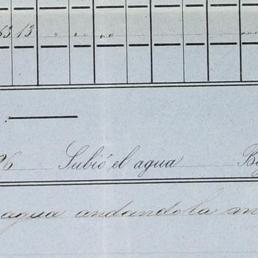 63 13
96 Subió el agua B
agua andando la m